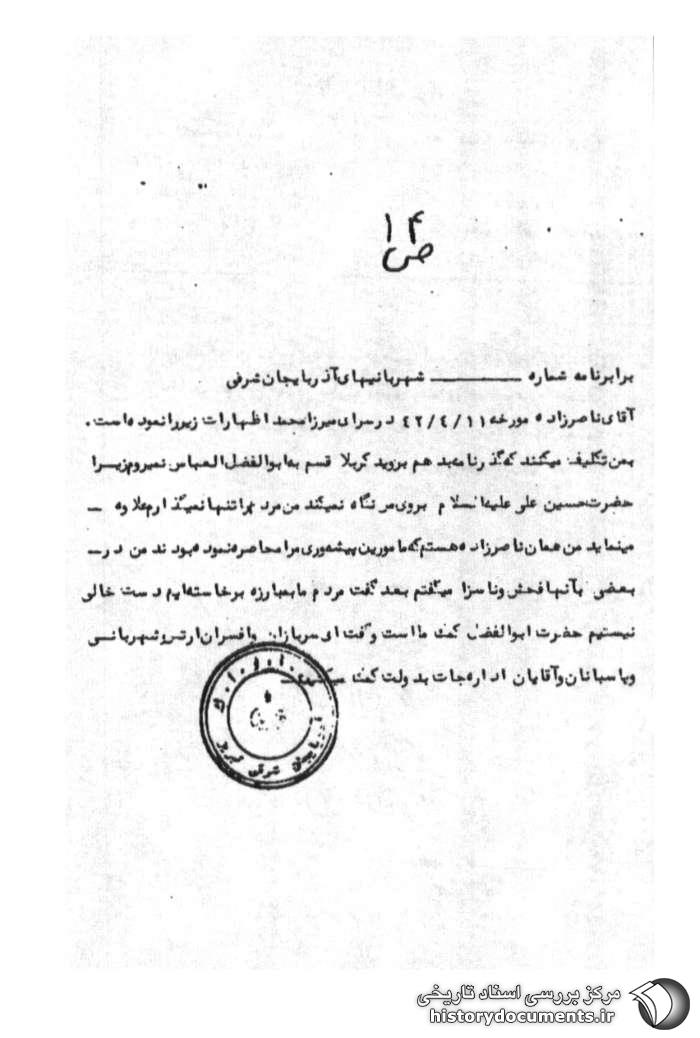 ۱۴
ص
برابرنامه شماره ــــــــ شهربانیهای آذربایجان شرقی
آقای ناصرزاده مورخه ۴۲/۴/۱۱ در سرای میرزا محمد اظهارات زیر را نموده است.
بمن تکلیف میکنند که گذرنامه بدهم بروید کربلا قسم به ابوالفضل العباس نمیروم زیرا
حضرت حسین علی علیه السلام بروی من نگاه نمیکند من مردم را تنها نمیگذارم علاوه ــ
مینماید من همان ناصرزاده هستم که مامورین پیشه‌وری مرا محاصره نموده بودند من درــ
بعضی بآنها فحش و ناسزا میگفتم بعد گفت مردم ما بمبارزه برخاسته‌ایم دست خالی
نیستیم حضرت ابوالفضل کمک ما است و گفت ای سربازان و افسران ارتش و شهربانی
و پاسبانان و آقایان ادارجات بدولت کمک
آذربایجان شرقی تبریز
مرکز بررسی اسناد تاریخی
historydocuments.ir